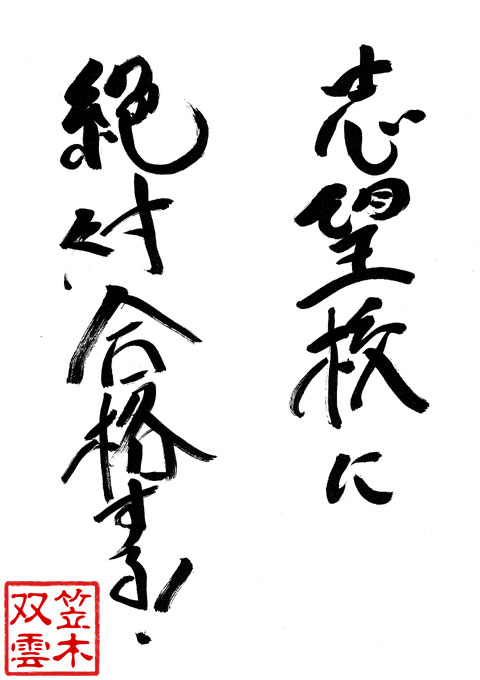 志望校に
絶対合格する.
笠木
双雲